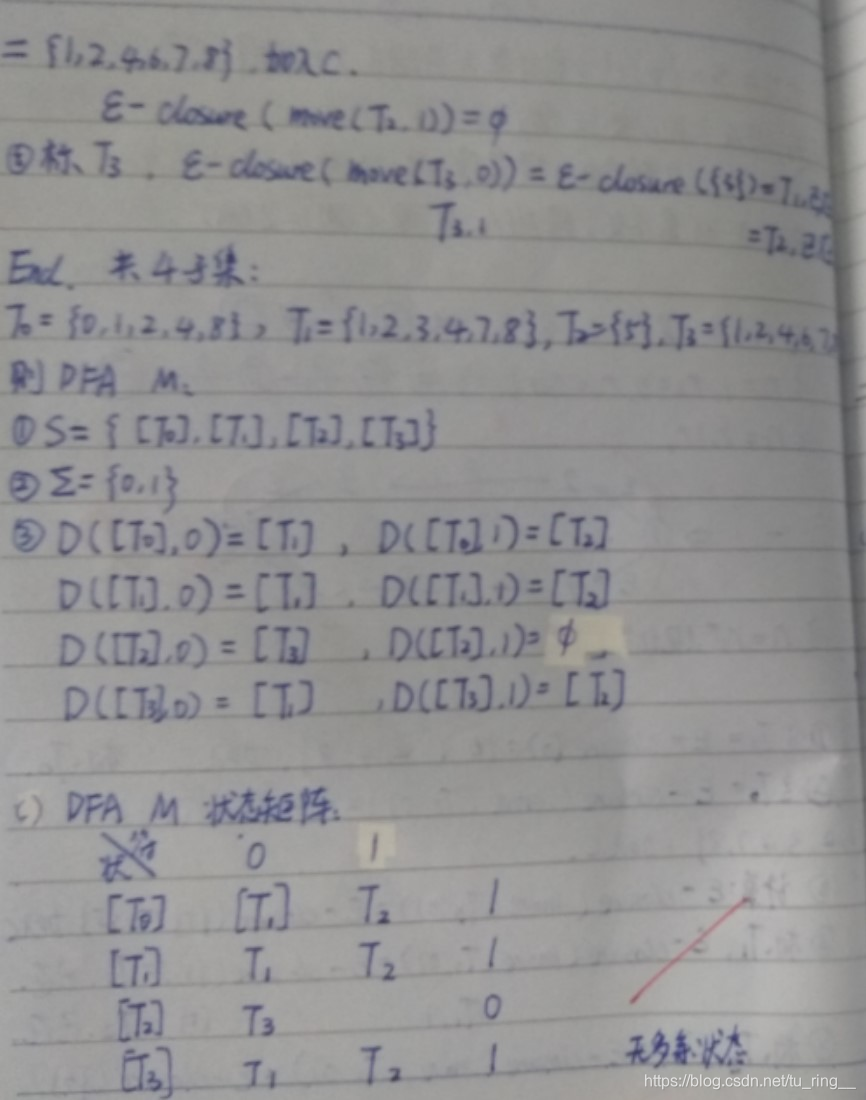 = {1,2,4,6,7,8} 加入C.
ε-closure(move(T₂,1))=φ
③标、T₃ . ε-closure(move(T₃,0)) = ε-closure({3})=T₁,已
T₃,1 =T₂,已
End. 共4子集:
T₀={0,1,2,4,8}, T₁={1,2,3,4,7,8}, T₂={5}, T₃={1,2,4,6,7
则 DFA M:
①S={ [T₀],[T₁],[T₂],[T₃]}
②Σ={0,1}
③D([T₀],0)=[T₁] , D([T₀],1)=[T₂]
D([T₁],0)=[T₁] , D([T₁],1)=[T₂]
D([T₂],0)=[T₃] , D([T₂],1)=φ
D([T₃],0)=[T₁] , D([T₃],1)=[T₂]
c) DFA M 状态矩阵:
状 符 0 1
[T₀] [T₁] T₂ 1
[T₁] T₁ T₂ 1
[T₂] T₃ 0
[T₃] T₁ T₂ 1
无多余状态
https://blog.csdn.net/tu_ring__